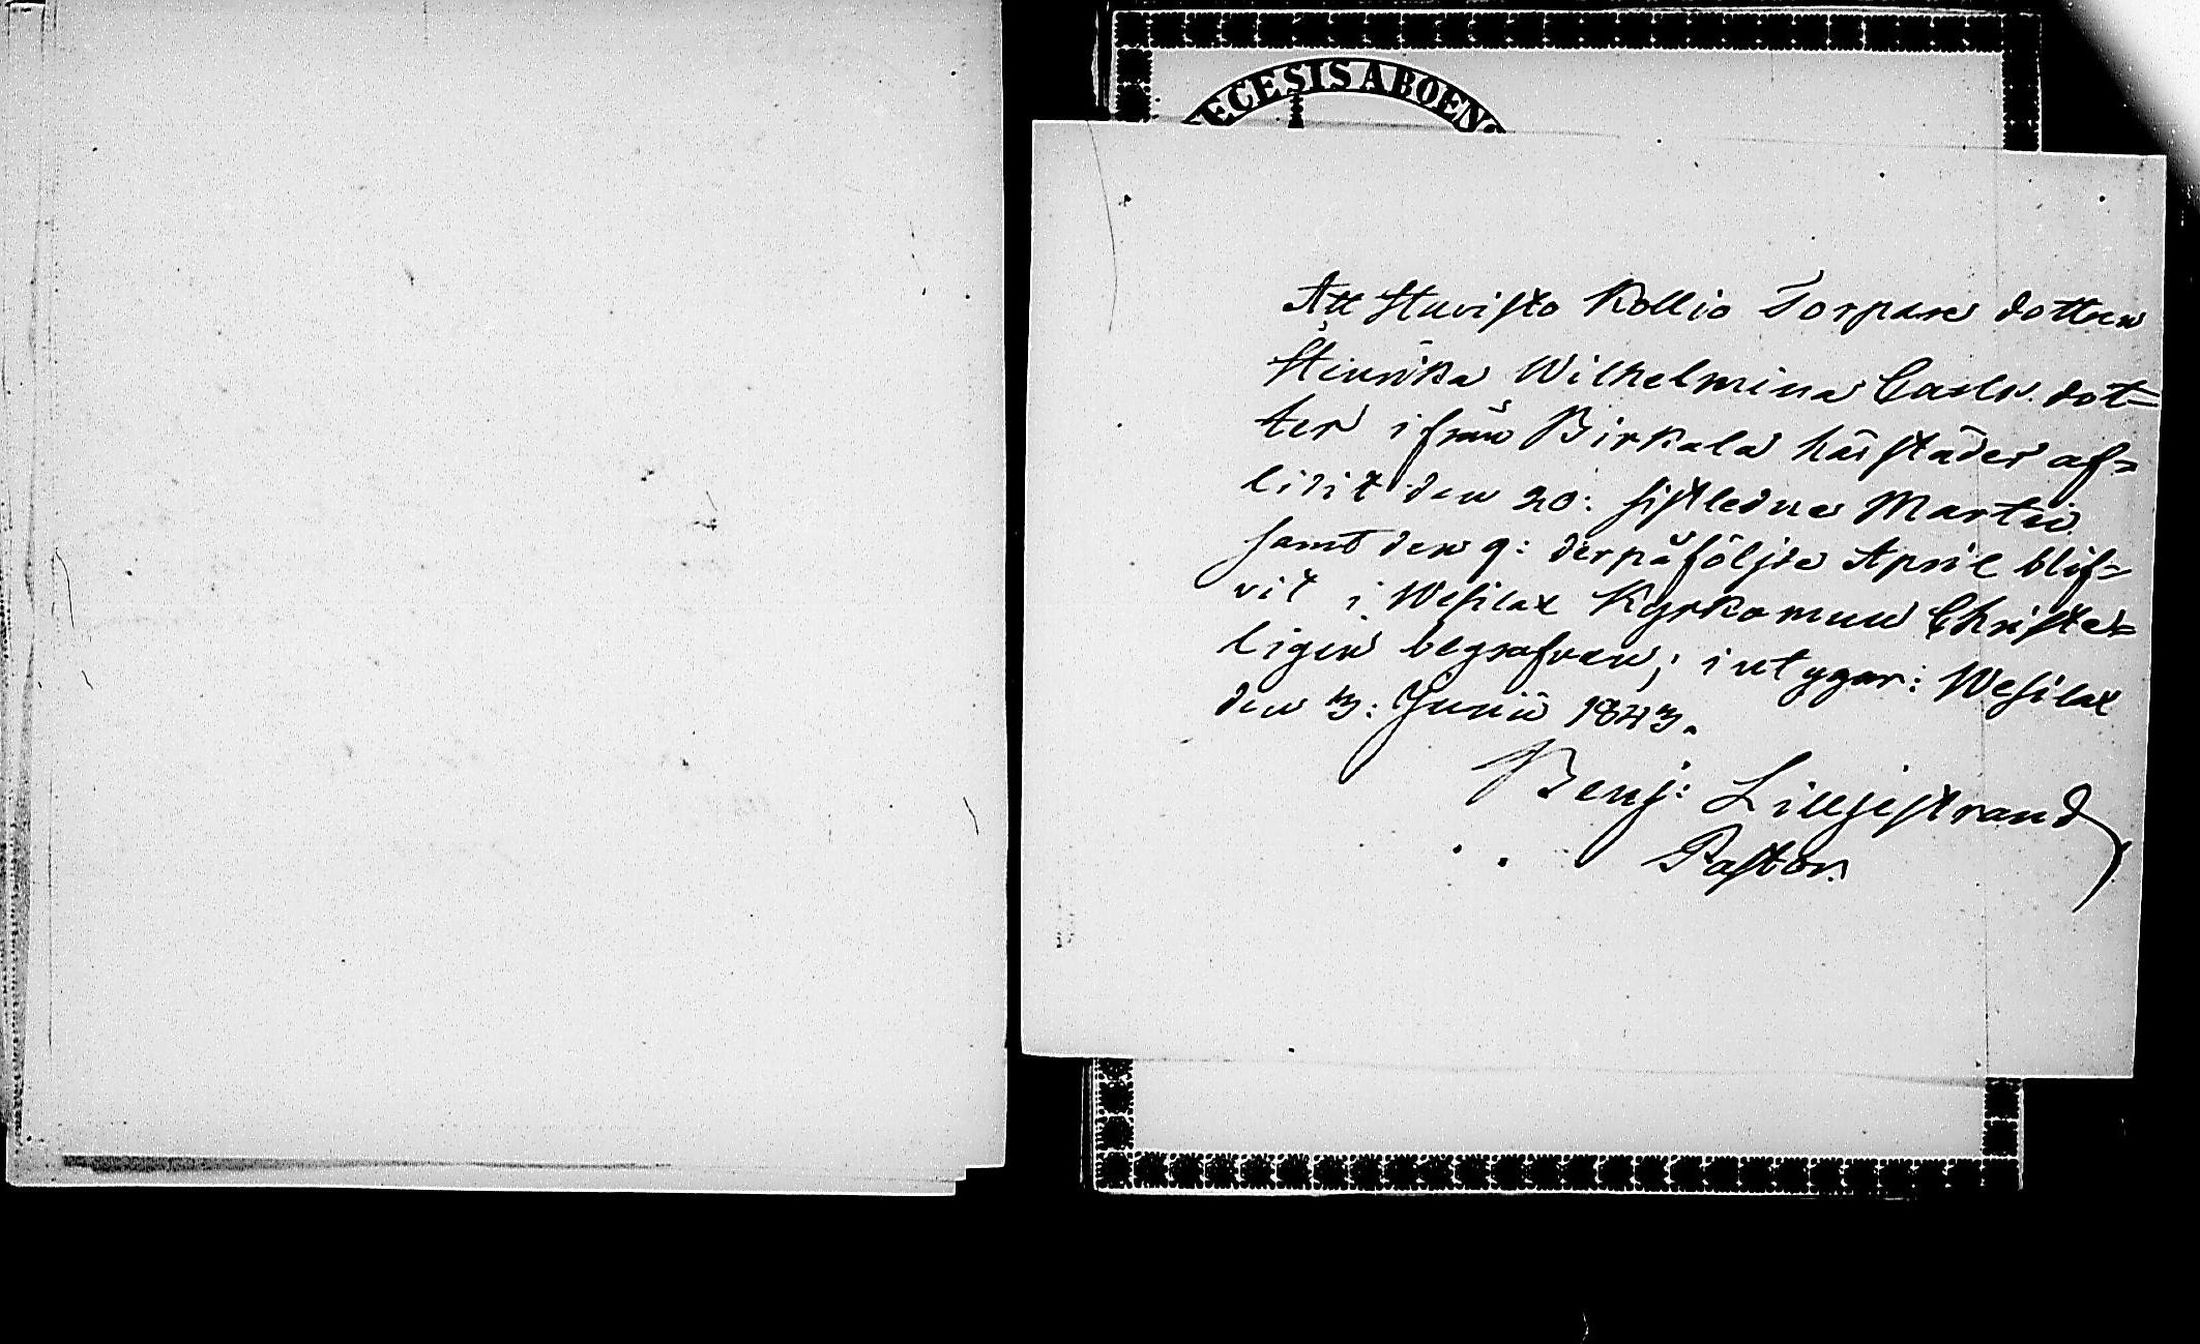 ECESIS ABOEN
Att Huvisto Kollio Torpare dotteren
Henrika Wilhelmina Carls dot=
ter ifrån Birkala härstädes af=
lidit den 20: sistledne Martii
samt den 9: derpåföljde April blif=
vit i Wesilax Kyrkomull Christe=
ligen begrafven; intygar: Wesilax
den 3: Junii 1843.
Benj: Lilljestrand
Pastor.